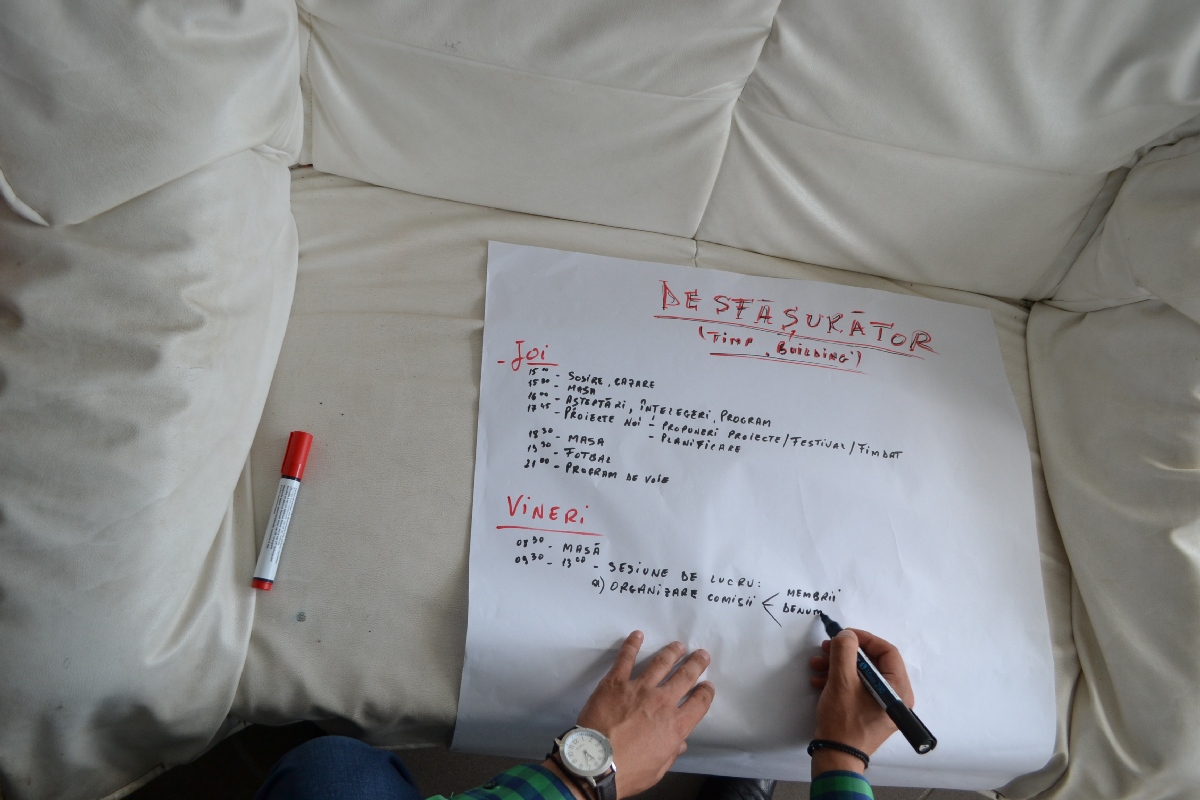 DESFĂȘURĂTOR
(TIMP BUILDING)
- JOI
15⁰⁰ - SOSIRE, CAZARE
15³⁰ - MASA
16⁰⁰ - AȘTEPTĂRI, ÎNȚELEGERI, PROGRAM
17⁴⁵ - PROIECTE NOI - PROPUNERI PROIECTE/FESTIVAL/TIMBAT
- PLANIFICARE
18³⁰ - MASA
19³⁰ - FOTBAL
21⁰⁰ - PROGRAM DE VOIE
VINERI
08³⁰ - MASĂ
09³⁰ - 13⁰⁰ - SESIUNE DE LUCRU:
a) ORGANIZARE COMISII < MEMBRII
DENUM